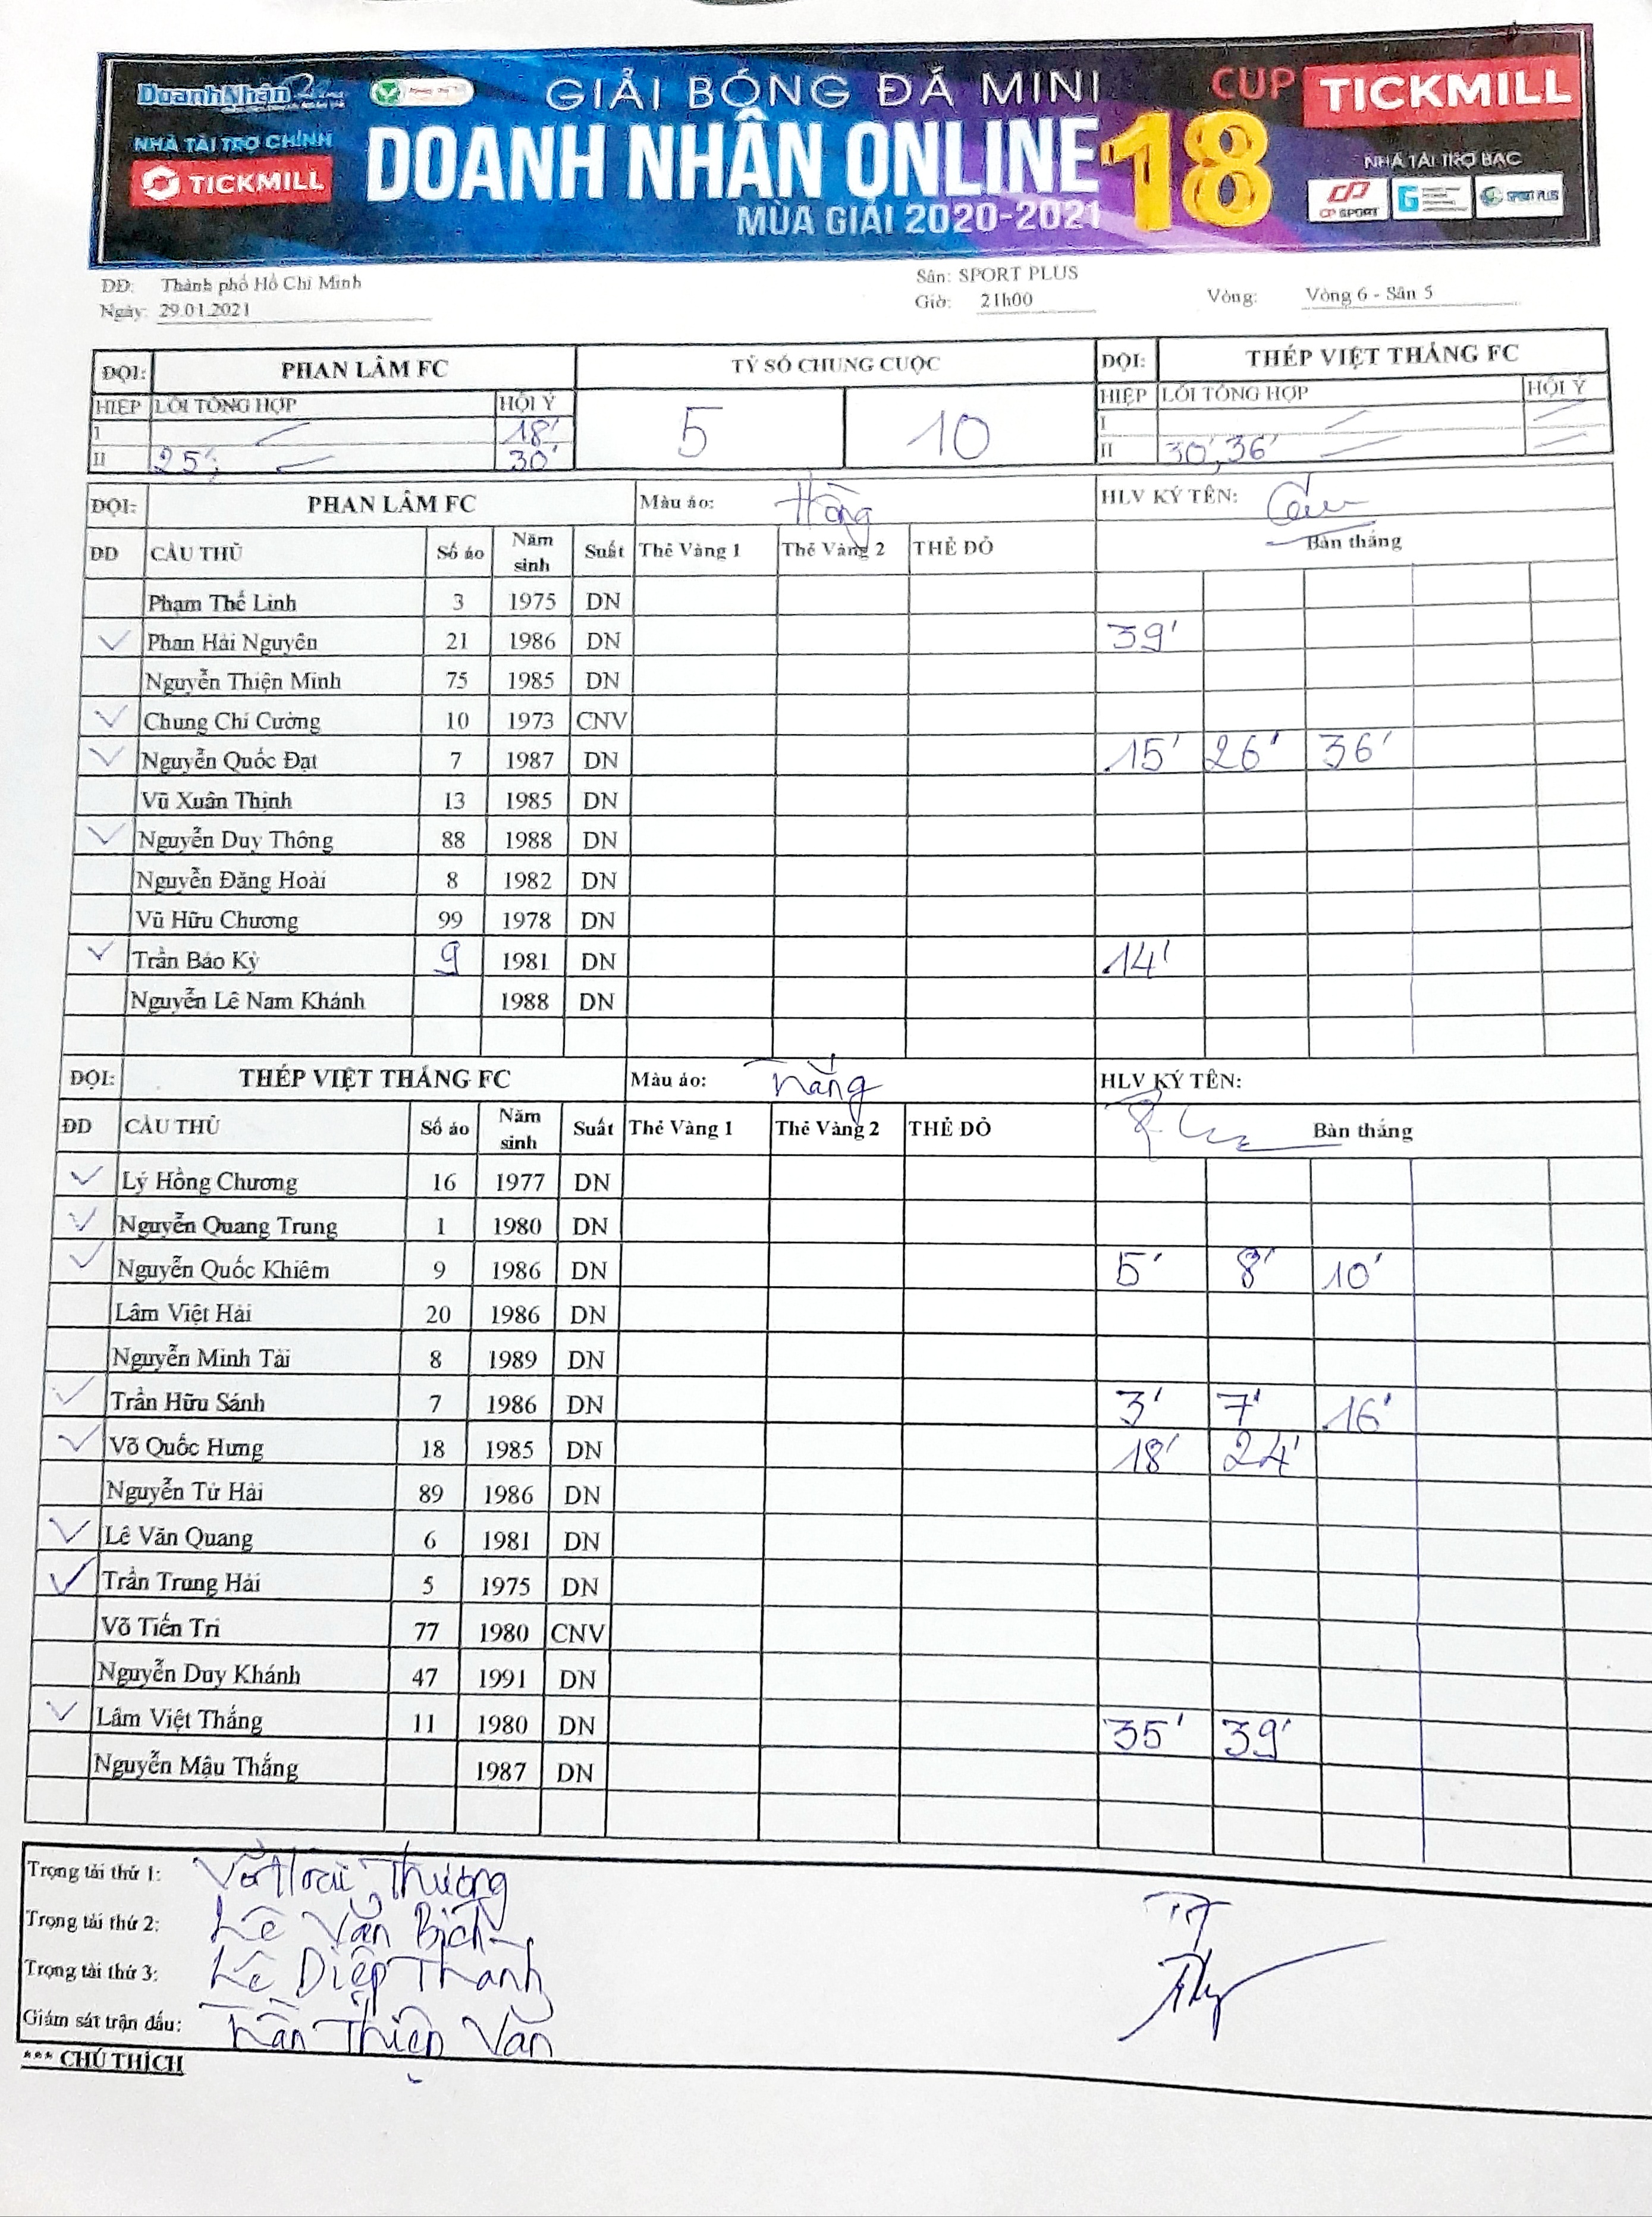 DoanhNhân
GIẢI BÓNG ĐÁ MINI
CUP TICKMILL
NHÀ TÀI TRỢ CHÍNH
TICKMILL
DOANH NHÂN ONLINE 18
MÙA GIẢI 2020-2021
NHÀ TÀI TRỢ BẠC
CP SPORT
SPORT PLUS
DĐ: Thành phố Hồ Chí Minh
Sân: SPORT PLUS
Ngày: 29.01.2021
Giờ: 21h00
Vòng: Vòng 6 - Sân 5
ĐỘI: PHAN LÂM FC TỶ SỐ CHUNG CUỘC ĐỘI: THÉP VIỆT THẮNG FC
HIỆP LỖI TỔNG HỢP HỘI Ý 5 10 HIỆP LỖI TỔNG HỢP HỘI Ý
I 18' I
II 25' 30' II 30', 36'
ĐỘI: PHAN LÂM FC Màu áo: Hồng HLV KÝ TÊN:
ĐD CẦU THỦ Số áo Năm sinh Suất Thẻ Vàng 1 Thẻ Vàng 2 THẺ ĐỎ Bàn thắng
Phạm Thế Linh 3 1975 DN
Phan Hải Nguyên 21 1986 DN 39'
Nguyễn Thiện Minh 75 1985 DN
Chung Chí Cường 10 1973 CNV
Nguyễn Quốc Đạt 7 1987 DN 15' 26' 36'
Vũ Xuân Thịnh 13 1985 DN
Nguyễn Duy Thông 88 1988 DN
Nguyễn Đăng Hoài 8 1982 DN
Vũ Hữu Chương 99 1978 DN
Trần Bảo Kỳ 9 1981 DN 14'
Nguyễn Lê Nam Khánh 1988 DN
ĐỘI: THÉP VIỆT THẮNG FC Màu áo: Trắng HLV KÝ TÊN:
ĐD CẦU THỦ Số áo Năm sinh Suất Thẻ Vàng 1 Thẻ Vàng 2 THẺ ĐỎ Bàn thắng
Lý Hồng Chương 16 1977 DN
Nguyễn Quang Trung 1 1980 DN
Nguyễn Quốc Khiêm 9 1986 DN 5' 8' 10'
Lâm Việt Hải 20 1986 DN
Nguyễn Minh Tài 8 1989 DN
Trần Hữu Sánh 7 1986 DN 3' 7' 16'
Võ Quốc Hưng 18 1985 DN 18' 24'
Nguyễn Tử Hải 89 1986 DN
Lê Văn Quang 6 1981 DN
Trần Trung Hải 5 1975 DN
Võ Tiến Trí 77 1980 CNV
Nguyễn Duy Khánh 47 1991 DN
Lâm Việt Thắng 11 1980 DN 35' 39'
Nguyễn Mậu Thắng 1987 DN
Trọng tài thứ 1: Võ Hoài Thương
Trọng tài thứ 2: Lê Văn Bịch
Trọng tài thứ 3: Lê Diệp Thanh
Giám sát trận đấu: Trần Thiện Văn
*** CHÚ THÍCH